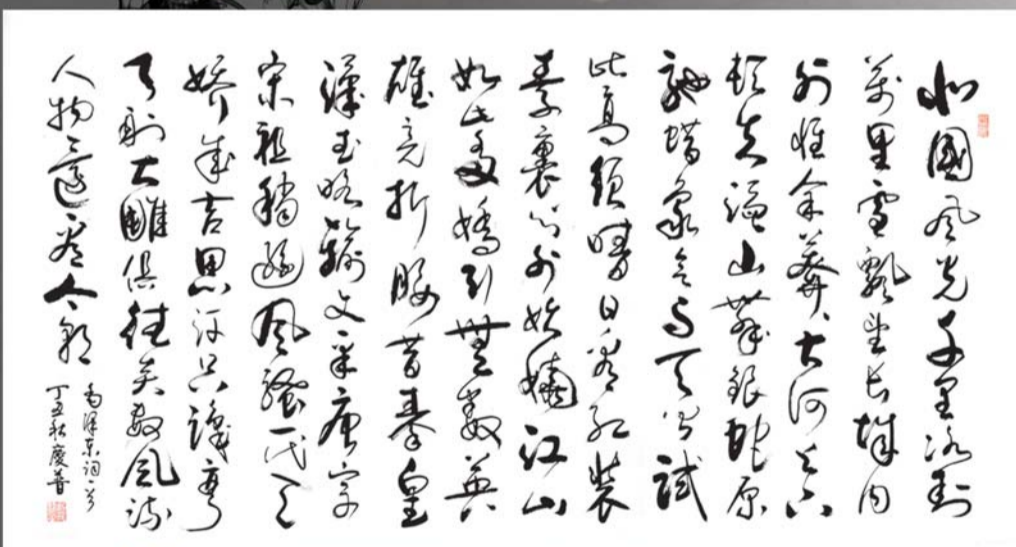 北國風光千里冰封
萬里雪飄望長城内
外惟余莽々大河上下
頓失滔々山舞銀蛇原
馳蜡象欲与天公試
比高須晴日看紅裝
素裹分外妖嬈江山
如此多嬌引無數英
雄竞折腰昔秦皇
漢武略輸文采唐宗
宋祖稍遜風騷一代天
嬌成吉思汗只識彎
弓射大雕俱往矣數風流
人物還看今朝
毛澤東詞一首
丁丑秋慶普